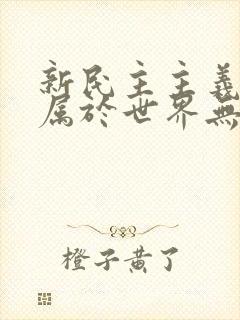 新民主主義
属於世界無
橙子黄了